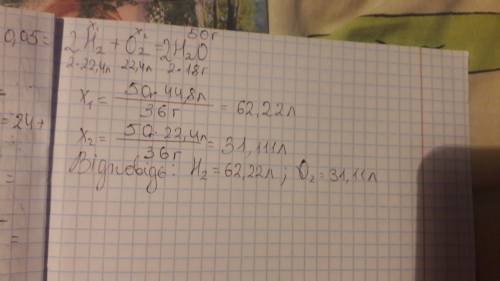 0,05=
x₁ x₂ 50г
2H₂ + O₂ = 2H₂O
2·22,4л 22,4л 2·18г
x₁ = 50·44,8л / 36г = 62,22л
=24+
x₂ = 50·22,4л / 36г = 31,111л
Відповідь: H₂ = 62,22л; O₂ = 31,11л